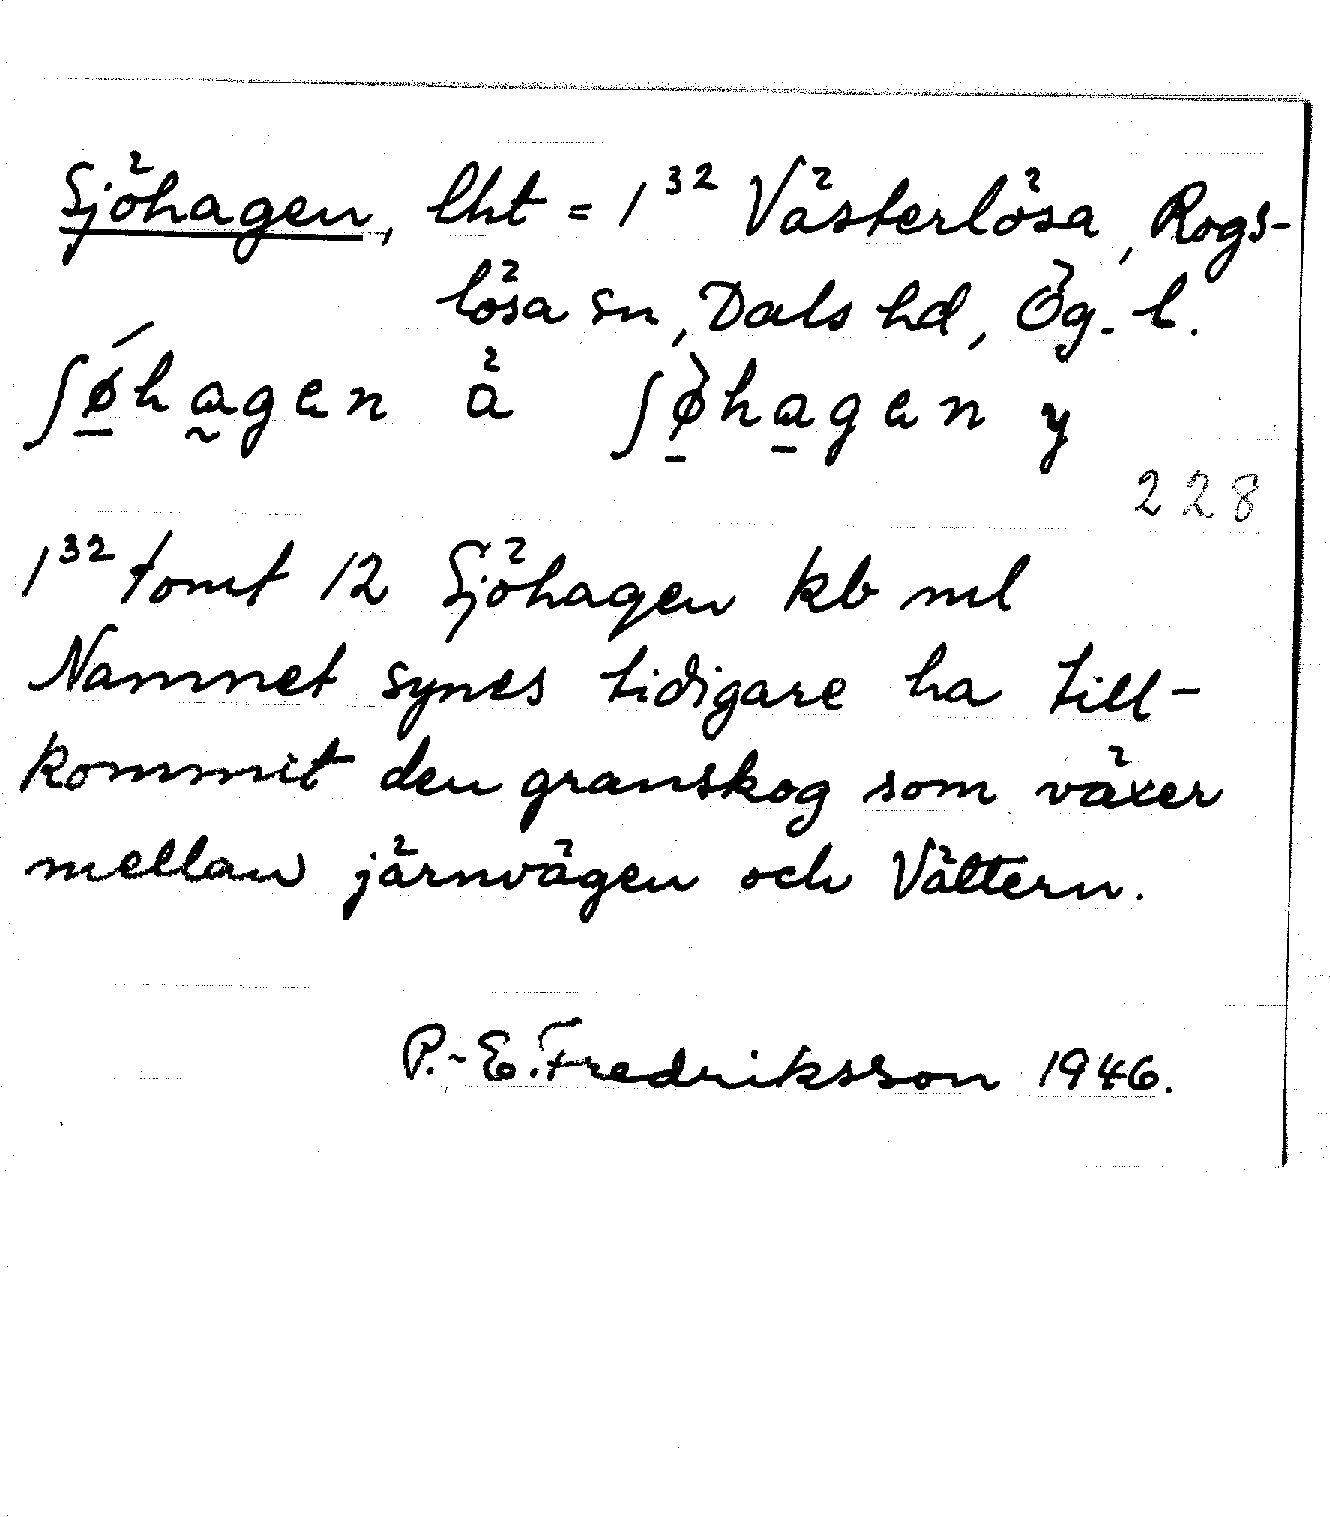 Sjöhagen, lht = 1³² Västerlösa, Rogs-
lösa sn, Dals hd, Ög. l.
ʃǿ̱ha̰gen ä ʃø̱̀ha̱gen y
228
1³² tomt 12 Sjöhagen kb ml
Namnet synes tidigare ha till-
kommit den granskog som växer
mellan järnvägen och Vättern.
P.-E. Fredriksson 1946.